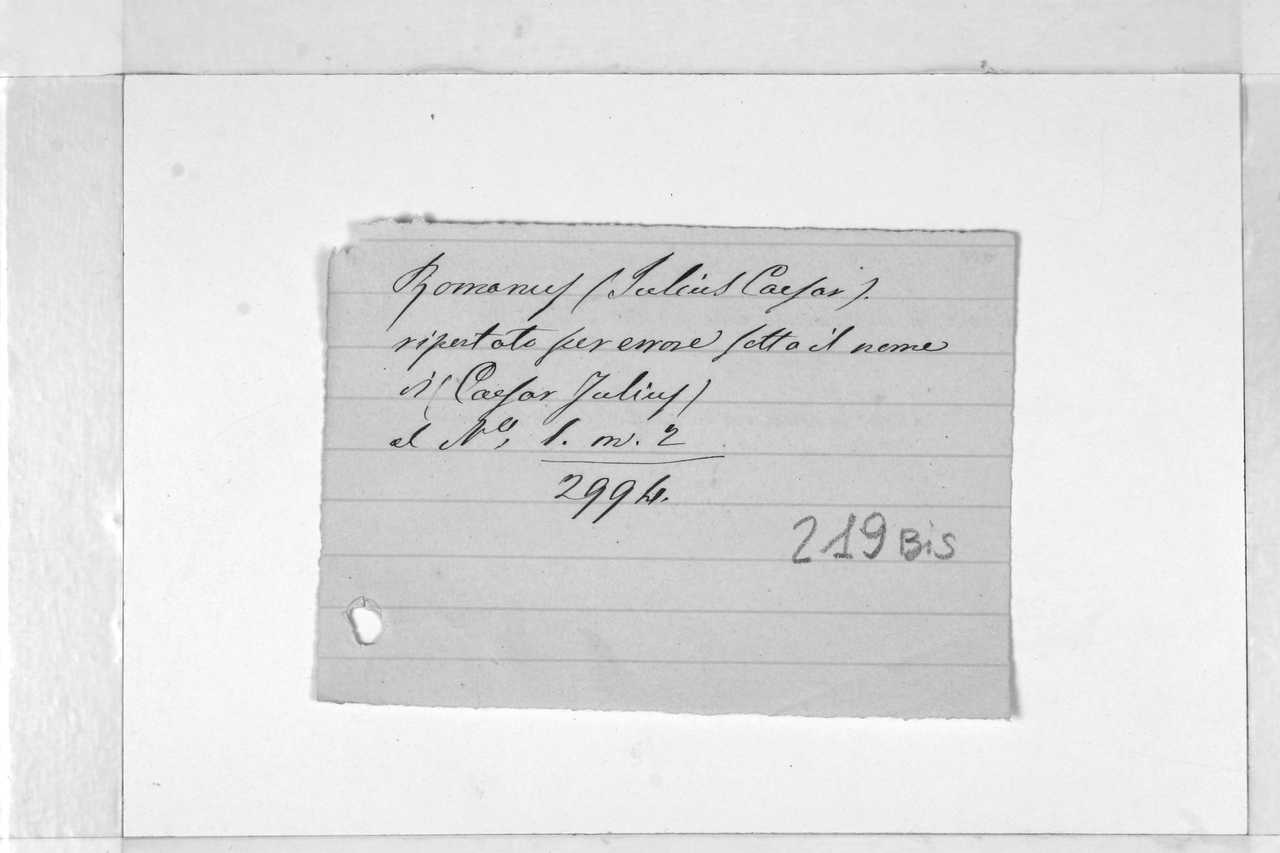 Romanus (Julius Caesar).
riportato per errore sotto il nome
di (Caesar Julius)
al N.º 1. m. 2
2994.
219 Bis